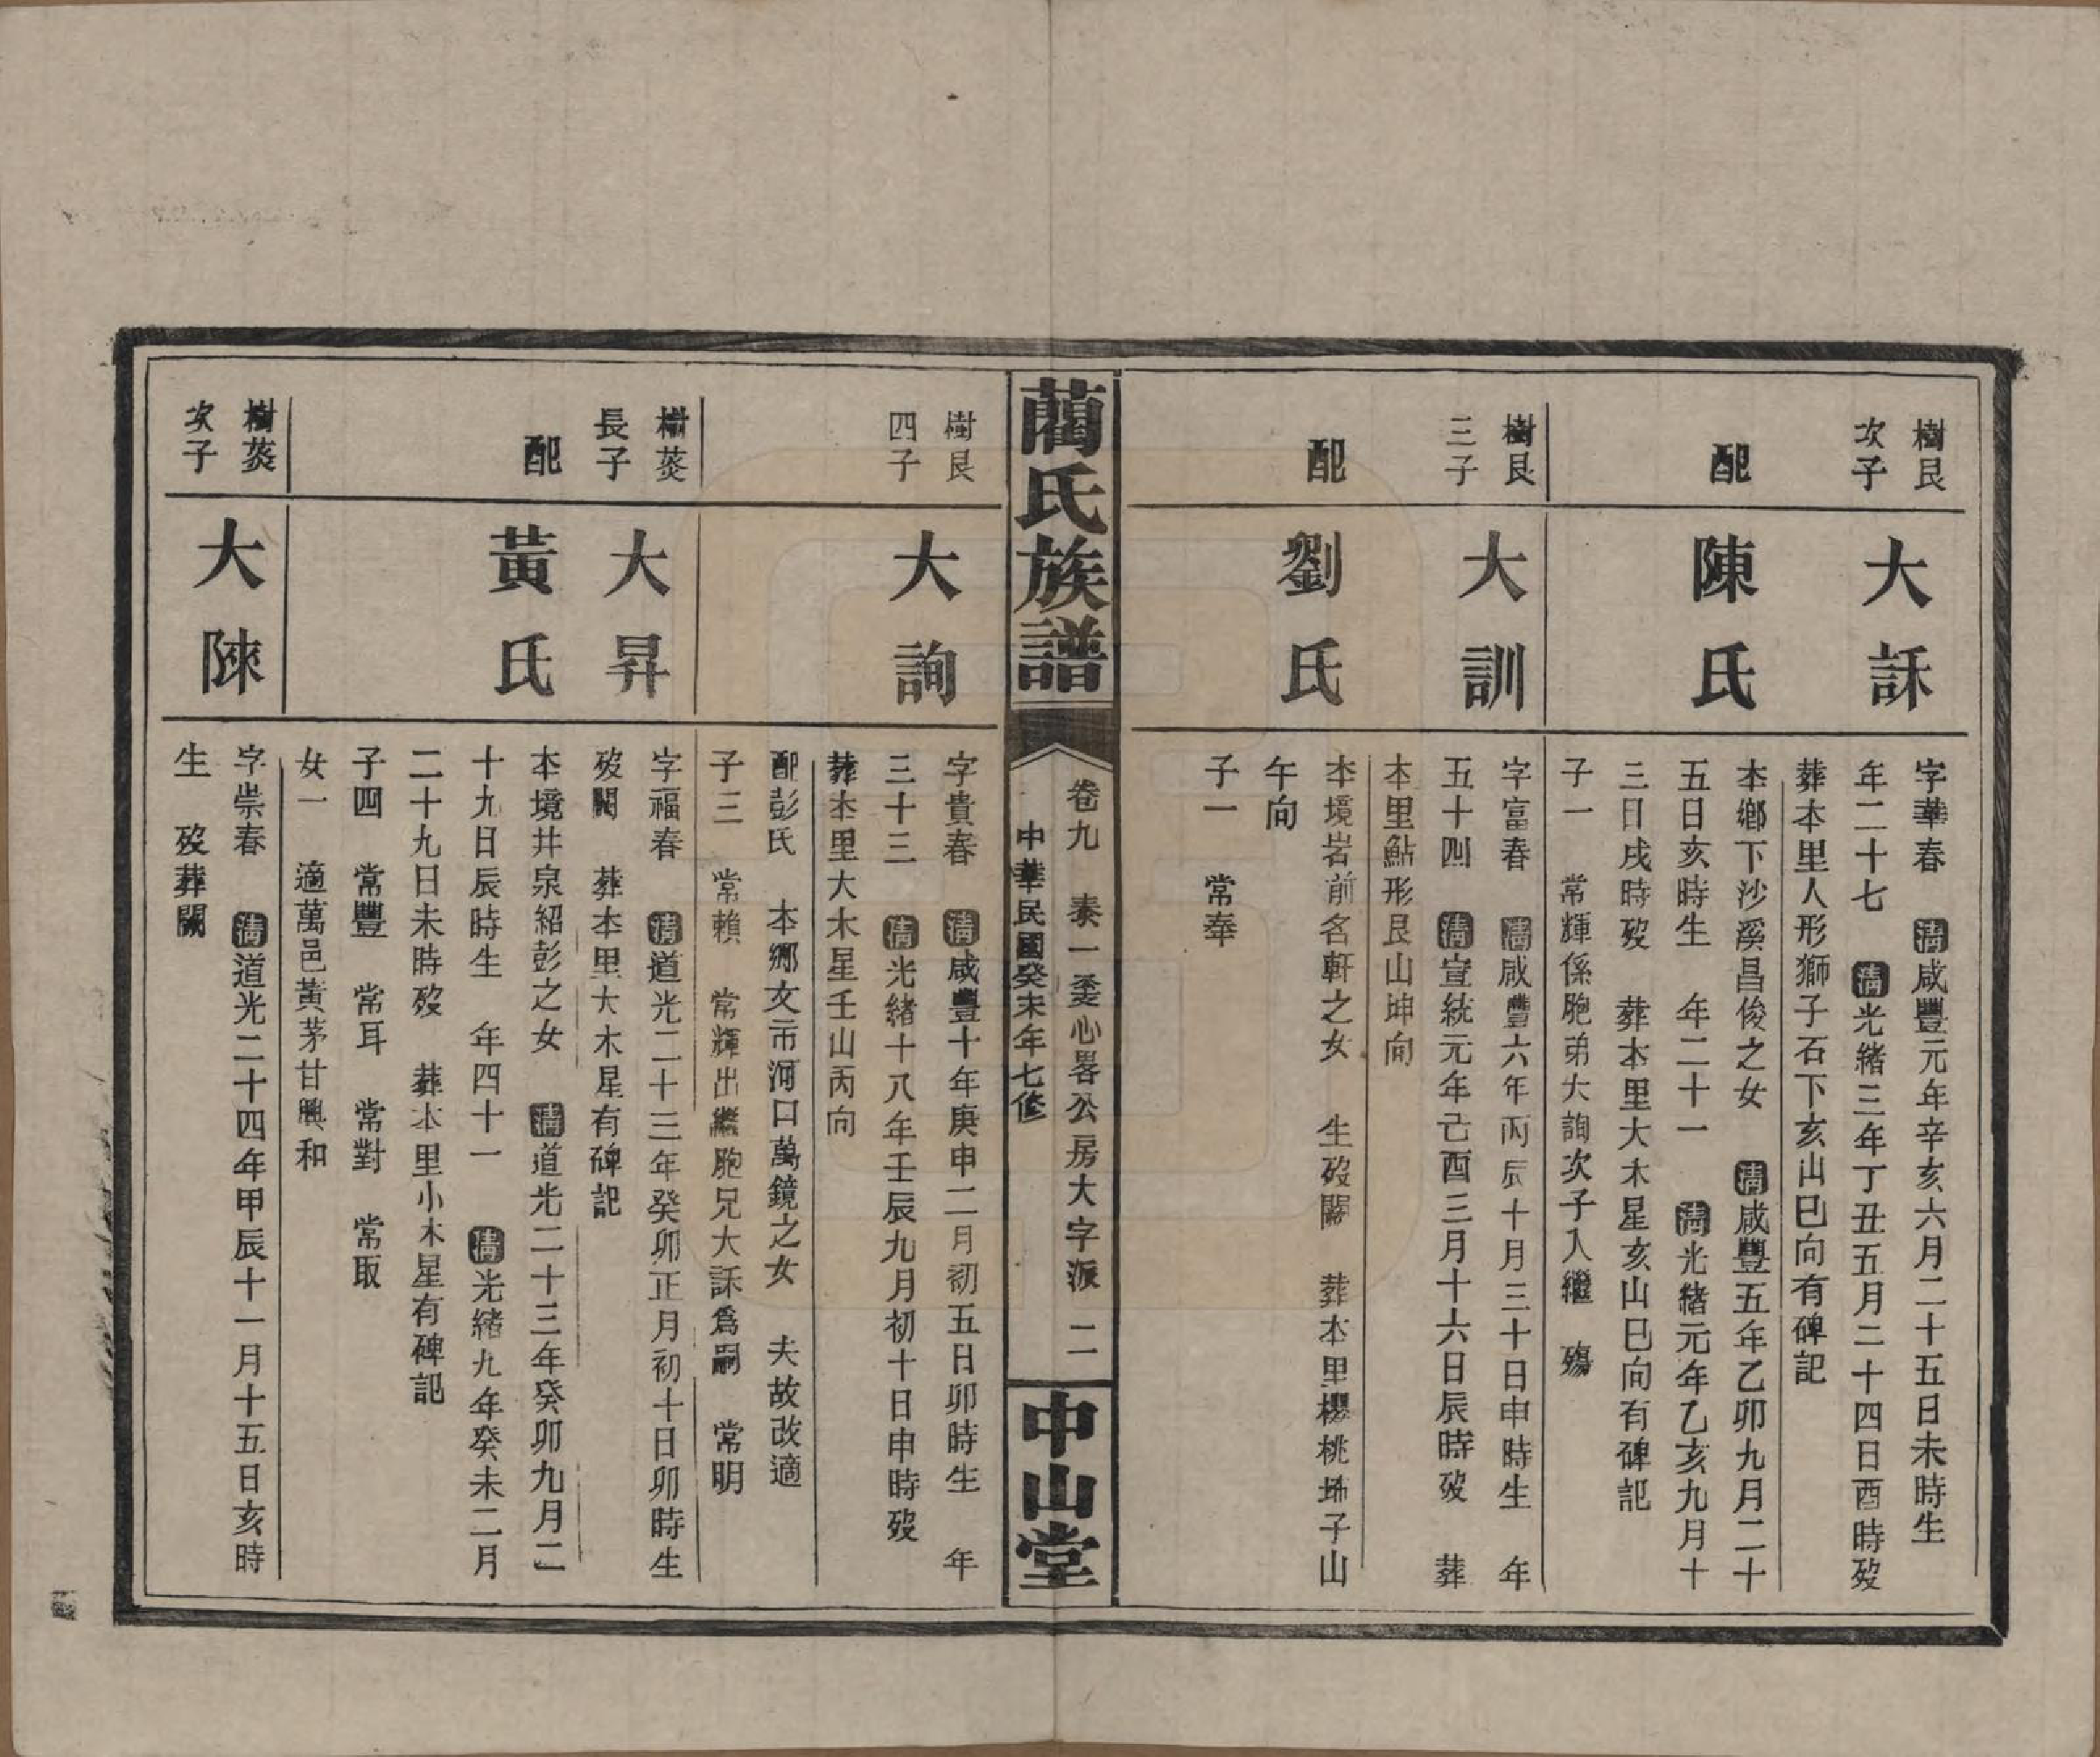 樹艮
次子
大訸
字華春　清咸豐元年辛亥六月二十五日未時生
年二十七　清光緒三年丁丑五月二十四日酉時歿
葬本里人形獅子石下亥山巳向有碑記
配
陳氏
本鄉下沙溪昌俊之女　清咸豐五年乙卯九月二十
五日亥時生　年二十一　清光緒元年乙亥九月十
三日戌時歿　葬本里大木星亥山巳向有碑記
子一　常輝係胞弟大詢次子入繼　殤
樹艮
三子
大訓
字富春　清咸豐六年丙辰十月三十日申時生　年
五十四　清宣統元年己酉三月十六日辰時歿　葬
本里鮎形艮山坤向
配
劉氏
本境岩前名軒之女　生歿闕　葬本里櫻桃埽子山
午向
子一　常奉
藺氏族譜
卷九　泰一委心畧公房大字派　二
中華民國癸未年七修
中山堂
樹艮
四子
大詢
字貴春　清咸豐十年庚申二月初五日卯時生　年
三十三　清光緒十八年壬辰九月初十日申時歿
葬本里大木星壬山丙向
配彭氏　本鄉文市河口萬鏡之女　夫故改適
子三　常賴　常輝出繼胞兄大訸爲嗣　常明
樹菼
長子
大昇
字福春　清道光二十三年癸卯正月初十日卯時生
歿闕　葬本里大木星有碑記
配
黃氏
本境井泉紹彭之女　清道光二十三年癸卯九月二
十九日辰時生　年四十一　清光緒九年癸未二月
二十九日未時歿　葬本里小木星有碑記
子四　常豐　常耳　常對　常取
女一　適萬邑黃茅甘興和
樹菼
次子
大陳
字崇春　清道光二十四年甲辰十一月十五日亥時
生　歿葬闕